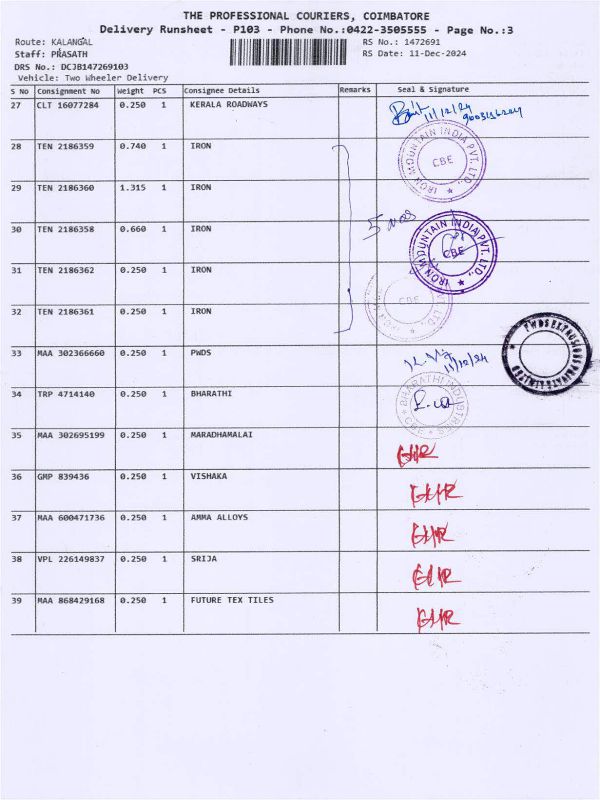 THE PROFESSIONAL COURIERS, COIMBATORE
Delivery Runsheet - P103 - Phone No.:0422-3505555 - Page No.:3
Route: KALANGAL
RS No.: 1472691
Staff: PRASATH
RS Date: 11-Dec-2024
DRS No.: DCJB147269103
Vehicle: Two Wheeler Delivery
S No Consignment No Weight PCS Consignee Details Remarks Seal & Signature
27 CLT 16077284 0.250 1 KERALA ROADWAYS
11/12/24
28 TEN 2186359 0.740 1 IRON
IRON MOUNTAIN INDIA PVT. LTD.,
CBE
29 TEN 2186360 1.315 1 IRON
5 nos
30 TEN 2186358 0.660 1 IRON
IRON MOUNTAIN INDIA PVT. LTD.,
CBE
31 TEN 2186362 0.250 1 IRON
CBE
32 TEN 2186361 0.250 1 IRON
33 MAA 302366660 0.250 1 PWDS
11/12/24
PWDS EXTRUSIONS PRIVATE LIMITED
34 TRP 4714140 0.250 1 BHARATHI
BHARATHI INDUSTRIES
CBE
35 MAA 302695199 0.250 1 MARADHAMALAI
36 GMP 839436 0.250 1 VISHAKA
37 MAA 600471736 0.250 1 AMMA ALLOYS
38 VPL 226149837 0.250 1 SRIJA
39 MAA 868429168 0.250 1 FUTURE TEX TILES